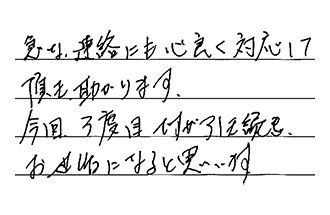 急な連絡にも心良く対応して
頂き助かります。
今回 3度目 付か引え続き、
お世話になると思います